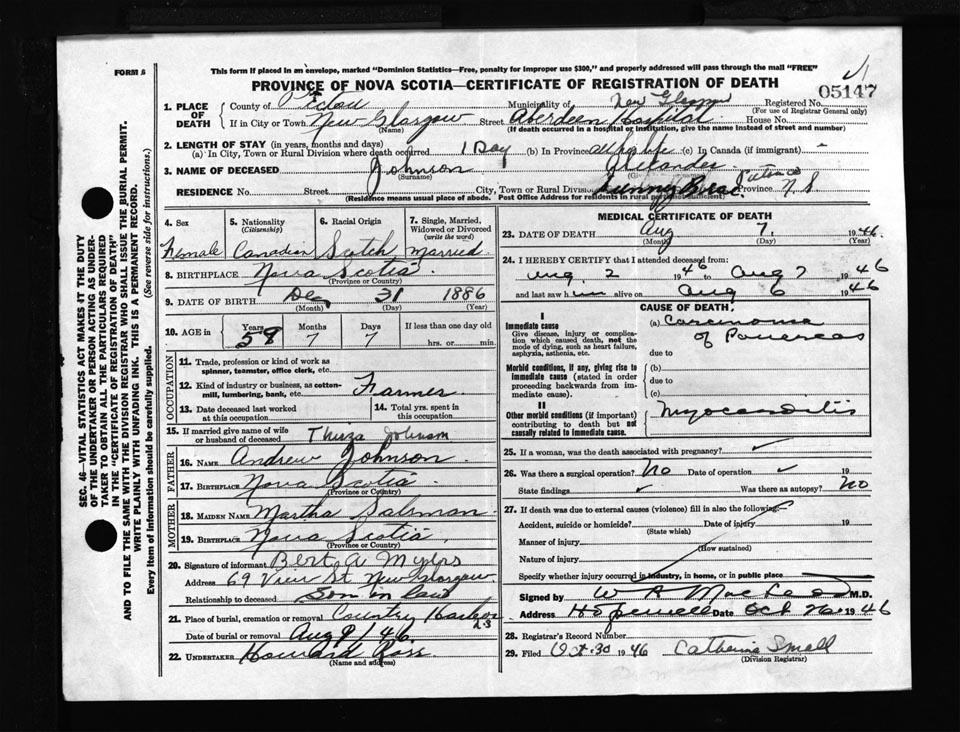 FORM 6
This form if placed in an envelope, marked "Dominion Statistics—Free, penalty for improper use $300," and properly addressed will pass through the mail "FREE"
PROVINCE OF NOVA SCOTIA—CERTIFICATE OF REGISTRATION OF DEATH
05147
1. PLACE OF DEATH
County of Pictou Municipality of New Glasgow Registered No.
(For use of Registrar General only)
If in City or Town New Glasgow Street Aberdeen Hospital House No.
(Name) (If death occurred in a hospital or institution, give the name instead of street and number)
2. LENGTH OF STAY (in years, months and days)
(a) In City, Town or Rural Division where death occurred 1 Day (b) In Province all his life (c) In Canada (if immigrant) -
3. NAME OF DECEASED Johnson
(Surname)
RESIDENCE No. Street City, Town or Rural Division Sunny Brae Province N.S
(Residence means usual place of abode. Post Office Address for residents in rural
4. Sex Female
5. Nationality (Citizenship) Canadian
6. Racial Origin Scotch
7. Single, Married, Widowed or Divorced (write the word) married
8. BIRTHPLACE Nova Scotia
(Province or Country)
9. DATE OF BIRTH Dec 31 1886
(Month) (Day) (Year)
10. AGE in Years Months Days If less than one day old
58 7 7 hrs. or min.
OCCUPATION
11. Trade, profession or kind of work as spinner, teamster, office clerk, etc.
12. Kind of industry or business, as cotton-mill, lumbering, bank, etc. Farmer
13. Date deceased last worked at this occupation
14. Total yrs. spent in this occupation
15. If married give name of wife or husband of deceased Johnson
FATHER
16. NAME Andrew Johnson
17. BIRTHPLACE Nova Scotia
(Province or Country)
MOTHER
18. MAIDEN NAME Martha Salsman
19. BIRTHPLACE Nova Scotia
(Province or Country)
20. Signature of informant Bert A
Address 69 View St New Glasgow
Relationship to deceased Son in law
21. Place of burial, cremation or removal Country Harbor
Date of burial or removal Aug 9/46
22. UNDERTAKER Howard Ross
(Name and address)
MEDICAL CERTIFICATE OF DEATH
23. DATE OF DEATH Aug 7, 1946
(Month) (Day) (Year)
24. I HEREBY CERTIFY that I attended deceased from:
Aug 2 1946 to Aug 7 1946
and last saw him alive on Aug 6 1946
CAUSE OF DEATH
I
Immediate cause
Give disease, injury or complication which caused death, not the mode of dying, such as heart failure, asphyxia, asthenia, etc.
(a) Carcinoma of Pancreas
due to
Morbid conditions, if any, giving rise to immediate cause (stated in order proceeding backwards from immediate cause.
(b)
due to
(c)
II
Other morbid conditions (if important) contributing to death but not causally related to immediate cause.
Myocarditis
25. If a woman, was the death associated with pregnancy?
26. Was there a surgical operation? No Date of operation 19
State findings Was there an autopsy? No
27. If death was due to external causes (violence) fill in also the following:
Accident, suicide or homicide? Date of injury 19
(State which)
Manner of injury
(How sustained)
Nature of injury
Specify whether injury occurred in industry, in home, or in public place
Signed by W R MacLeod M.D.
Address Hopewell Date Oct 26 1946
28. Registrar's Record Number
29. Filed Oct 30 1946 Catherine Small
(Division Registrar)
SEC. 46—VITAL STATISTICS ACT MAKES IT THE DUTY
OF THE UNDERTAKER OR PERSON ACTING AS UNDER-
TAKER TO OBTAIN ALL THE PARTICULARS REQUIRED
IN THE "CERTIFICATE OF REGISTRATION OF DEATH"
AND TO FILE THE SAME WITH THE DIVISION REGISTRAR WHO SHALL ISSUE THE BURIAL PERMIT.
WRITE PLAINLY WITH UNFADING INK. THIS IS A PERMANENT RECORD.
Every item of information should be carefully supplied. (See reverse side for instructions.)